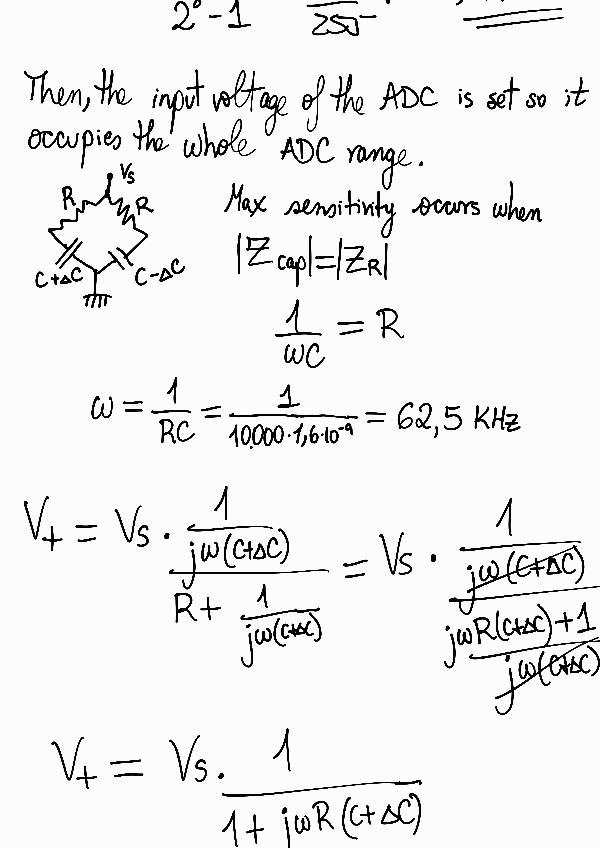 2⁸-1 250
Then, the input voltage of the ADC is set so it
occupies the whole ADC range.
Vs
R R
C+ΔC C-ΔC
Max sensitivity occurs when
|Z cap|=|ZR|
1/ωC = R
ω = 1/RC = 1/(10.000·1,6·10⁻⁹) = 62,5 KHz
V+ = Vs · (1/(jω(C+ΔC)))/(R+ 1/(jω(C+ΔC))) = Vs · (1/(jω(C+ΔC)))/((jωR(C+ΔC)+1)/(jω(C+ΔC)))
V+ = Vs · 1/(1+ jωR(C+ΔC))